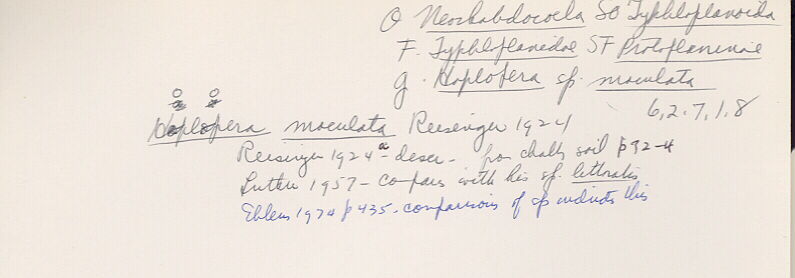 O Neorhabdocoela SO Typhloplanoida
F. Typhloplanidae SF Protoplaninae
g. Hoplopera sp. maculata
6,2.7,1.8
Hoplopera maculata Reisinger 1924
Reisinger 1924a - descr - from chalk soil p 32-4
Luther 1957 - compares with his sp. littoralis
Ehlers 1974 p 435 - comparisons of sp indicates this